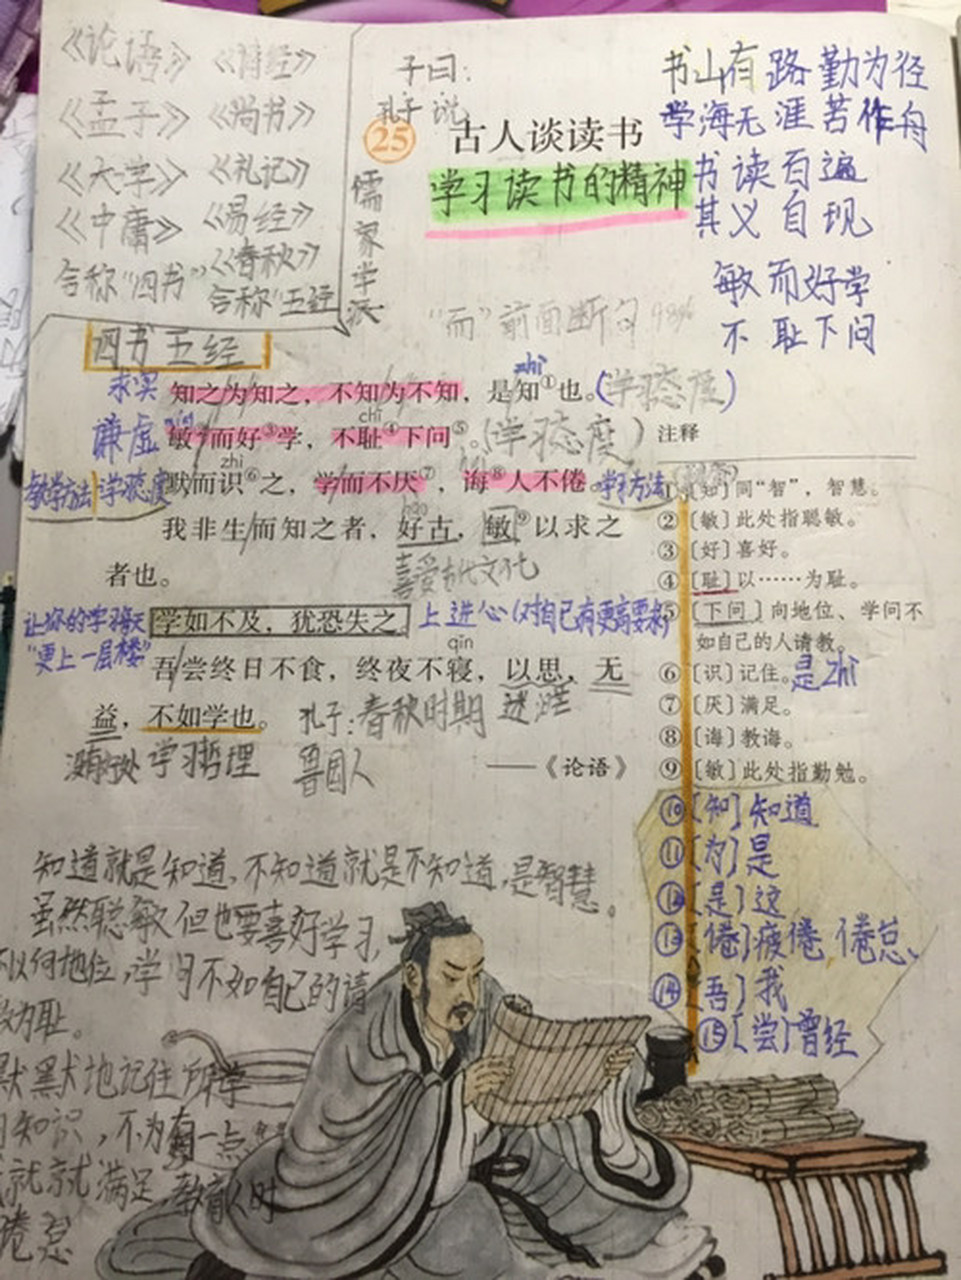 《论语》 《诗经》
《孟子》 《尚书》
《大学》 《礼记》
《中庸》 《易经》
合称"四书" 《春秋》
合称"五经"
四书五经
子曰：
孔子说
儒家学派
25 古人谈读书
学习读书的精神
书山有路勤为径
学海无涯苦作舟
书读百遍
其义自现
敏而好学
不耻下问
"而"前面断句
zhī
求实 知之为知之，不知为不知，是知①也。(学习态度)
chǐ
谦虚 敏而好③学，不耻④下问⑤。(学习态度)
zhì
教学方法 学习态度 默而识⑥之，学而不厌⑦，诲⑧人不倦。学习方法
hào
我非生而知之者，好古，敏⑨以求之
者也。
喜爱古代文化
让你的学习每天
"更上一层楼"
学如不及，犹恐失之。 上进心(对自己有更高要求)
qǐn
吾尝终日不食，终夜不寝，以思，无
益，不如学也。
没有好处 学习哲理
孔子：春秋时期
鲁国人
——《论语》
注释
①〔知〕同"智"，智慧。
②〔敏〕此处指聪敏。
③〔好〕喜好。
④〔耻〕以……为耻。
⑤〔下问〕向地位、学问不
如自己的人请教。
⑥〔识〕记住。是zhì
⑦〔厌〕满足。
⑧〔诲〕教诲。
⑨〔敏〕此处指勤勉。
⑩〔知〕知道
⑪〔为〕是
⑫〔是〕这
⑬〔倦〕疲倦 倦怠、
⑭〔吾〕我
⑮〔尝〕曾经
知道就是知道，不知道就是不知道，是智慧。
虽然聪敏但也要喜好学习，
不以向地位，学习不如自己的请
教为耻。
默默地记住所学
的知识，不为有一点
就就满足，教育人时
倦怠